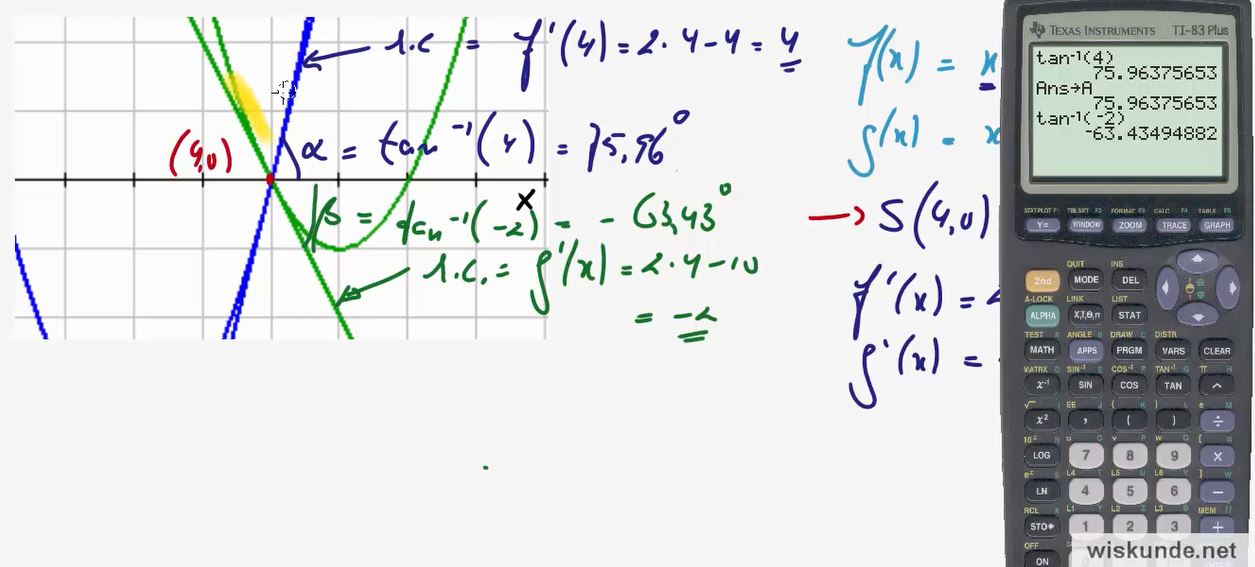 r.c = f'(4) = 2·4-4 = 4
(4,0) α = tan⁻¹(4) = 75,96°
β = tan⁻¹(-2) = -63,43°
x
r.c. = g'(x) = 2·4-10
= -2
f(x) = x
g(x) = x
→ S(4,0)
f'(x) = 2
g'(x) =
TEXAS INSTRUMENTS TI-83 Plus
tan⁻¹(4)
75.96375653
Ans→A
75.96375653
tan⁻¹(-2)
-63.43494882
STAT PLOT F1 TBLSET F2 FORMAT F3 CALC F4 TABLE F5
Y= WINDOW ZOOM TRACE GRAPH
QUIT INS
2nd MODE DEL
A-LOCK LINK LIST
ALPHA X,T,θ,n STAT
TEST A ANGLE B DRAW C DISTR
MATH APPS PRGM VARS CLEAR
MATRX D SIN⁻¹ E COS⁻¹ F TAN⁻¹ G π H
x⁻¹ SIN COS TAN ^
√ I EE J { K } L e M
x² , ( ) ÷
10ˣ N u O v P w Q [ R
LOG 7 8 9 ×
eˣ S L4 T L5 U L6 V ] W
LN 4 5 6 −
RCL X L1 Y L2 Z L3 θ MEM "
STO▸ 1 2 3 +
OFF
ON
wiskunde.net